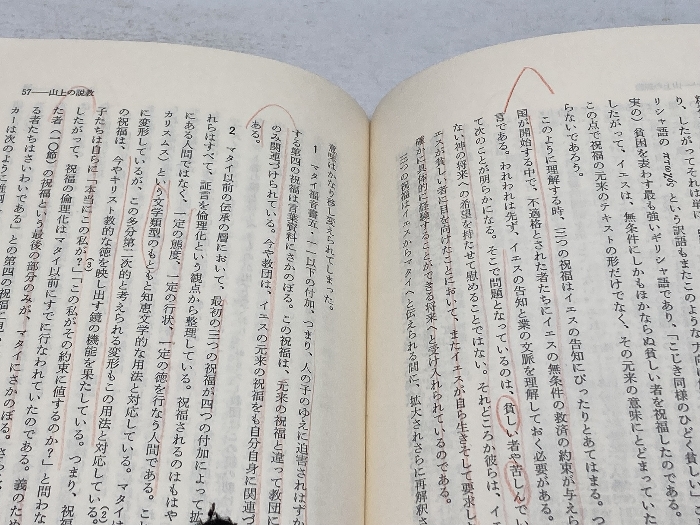 したがって、イエスは、無条件にしかもほかならぬ貧しい者を祝福したのである。
実の）貧困を表わす最も強いギリシャ語であり、「こじき同様のひどく貧しい」
リシャ語の という訳語もまたこのような
この点で祝福の元来のテキストの形だけでなく、その元来の意味にとどまってい
らないであろう。
このように理解する時、三つの祝福はイエスの告知にぴったりとあてはまる。
国が開始する中で、不適格とされた者たちにイエスの無条件の救済の約束が与えら
言である。われわれは先ず、イエスの告知と業の文脈を理解しておく必要がある。
て次のことが明らかになる。そこで問題となっているのは、貧しい者や苦しんでい
ない神の将来への希望を持たせて慰めることではない。それどころか彼らは、イエ
エスが貧しい者に目を向けたことにおいて、またイエスが自ら生きそして要求し
確かに具体的に経験することができる将来へと受け入れられているのである。
三つの祝福はイエスからマタイへと伝えられる間に、拡大されさらに再解釈さ
57——山上の説教
意味はかなり移し変えられてしまった。
1 マタイ福音書五・一一以下の付加、つまり、人の子のゆえに迫害されはずか
する第四の祝福は言葉資料にさかのぼる。この祝福は、元来の祝福と違って教団に
のみ関連づけられている。今や教団は、イエスの元来の祝福をも自分自身に関連づ
ある。
2 マタイ以前の伝承の層において、最初の三つの祝福が四つの付加によって拡
れらはすべて、証言を倫理化という観点から整理している。祝福されるのはもはや
にある人間ではなく、一定の態度、一定の行状、一定の徳を行なう人間である。こ
カリスムス）という文学類型のもともと知恵文学的な用法と対応している。マタイは
に変形しているが、この多分第二次的と考えられる変形もこの用法と対応している。(2)
の祝福は、今やキリスト教的な徳を映し出す鏡の機能を果たしている。つまり、祝福
子たちは自らに「本当にこの私が？」「この私がその約束に値するのか？」と問わな(3)
したがって、祝福の倫理化はマタイ以前にすでに行なわれていたのである。義のため
た者（一〇節）の祝福という最後の部分のみが、マタイにさかのぼる。
る者たちはさいわいである」との第四の祝福に
カーは次のように